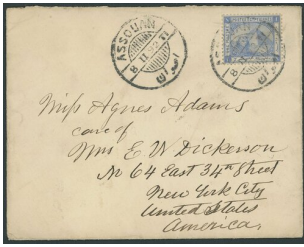 ASSOUAN
Miss Agnes Adams
care of
Mrs E. W. Dickerson
No 64 East 34th Street
New York City
United States
America.